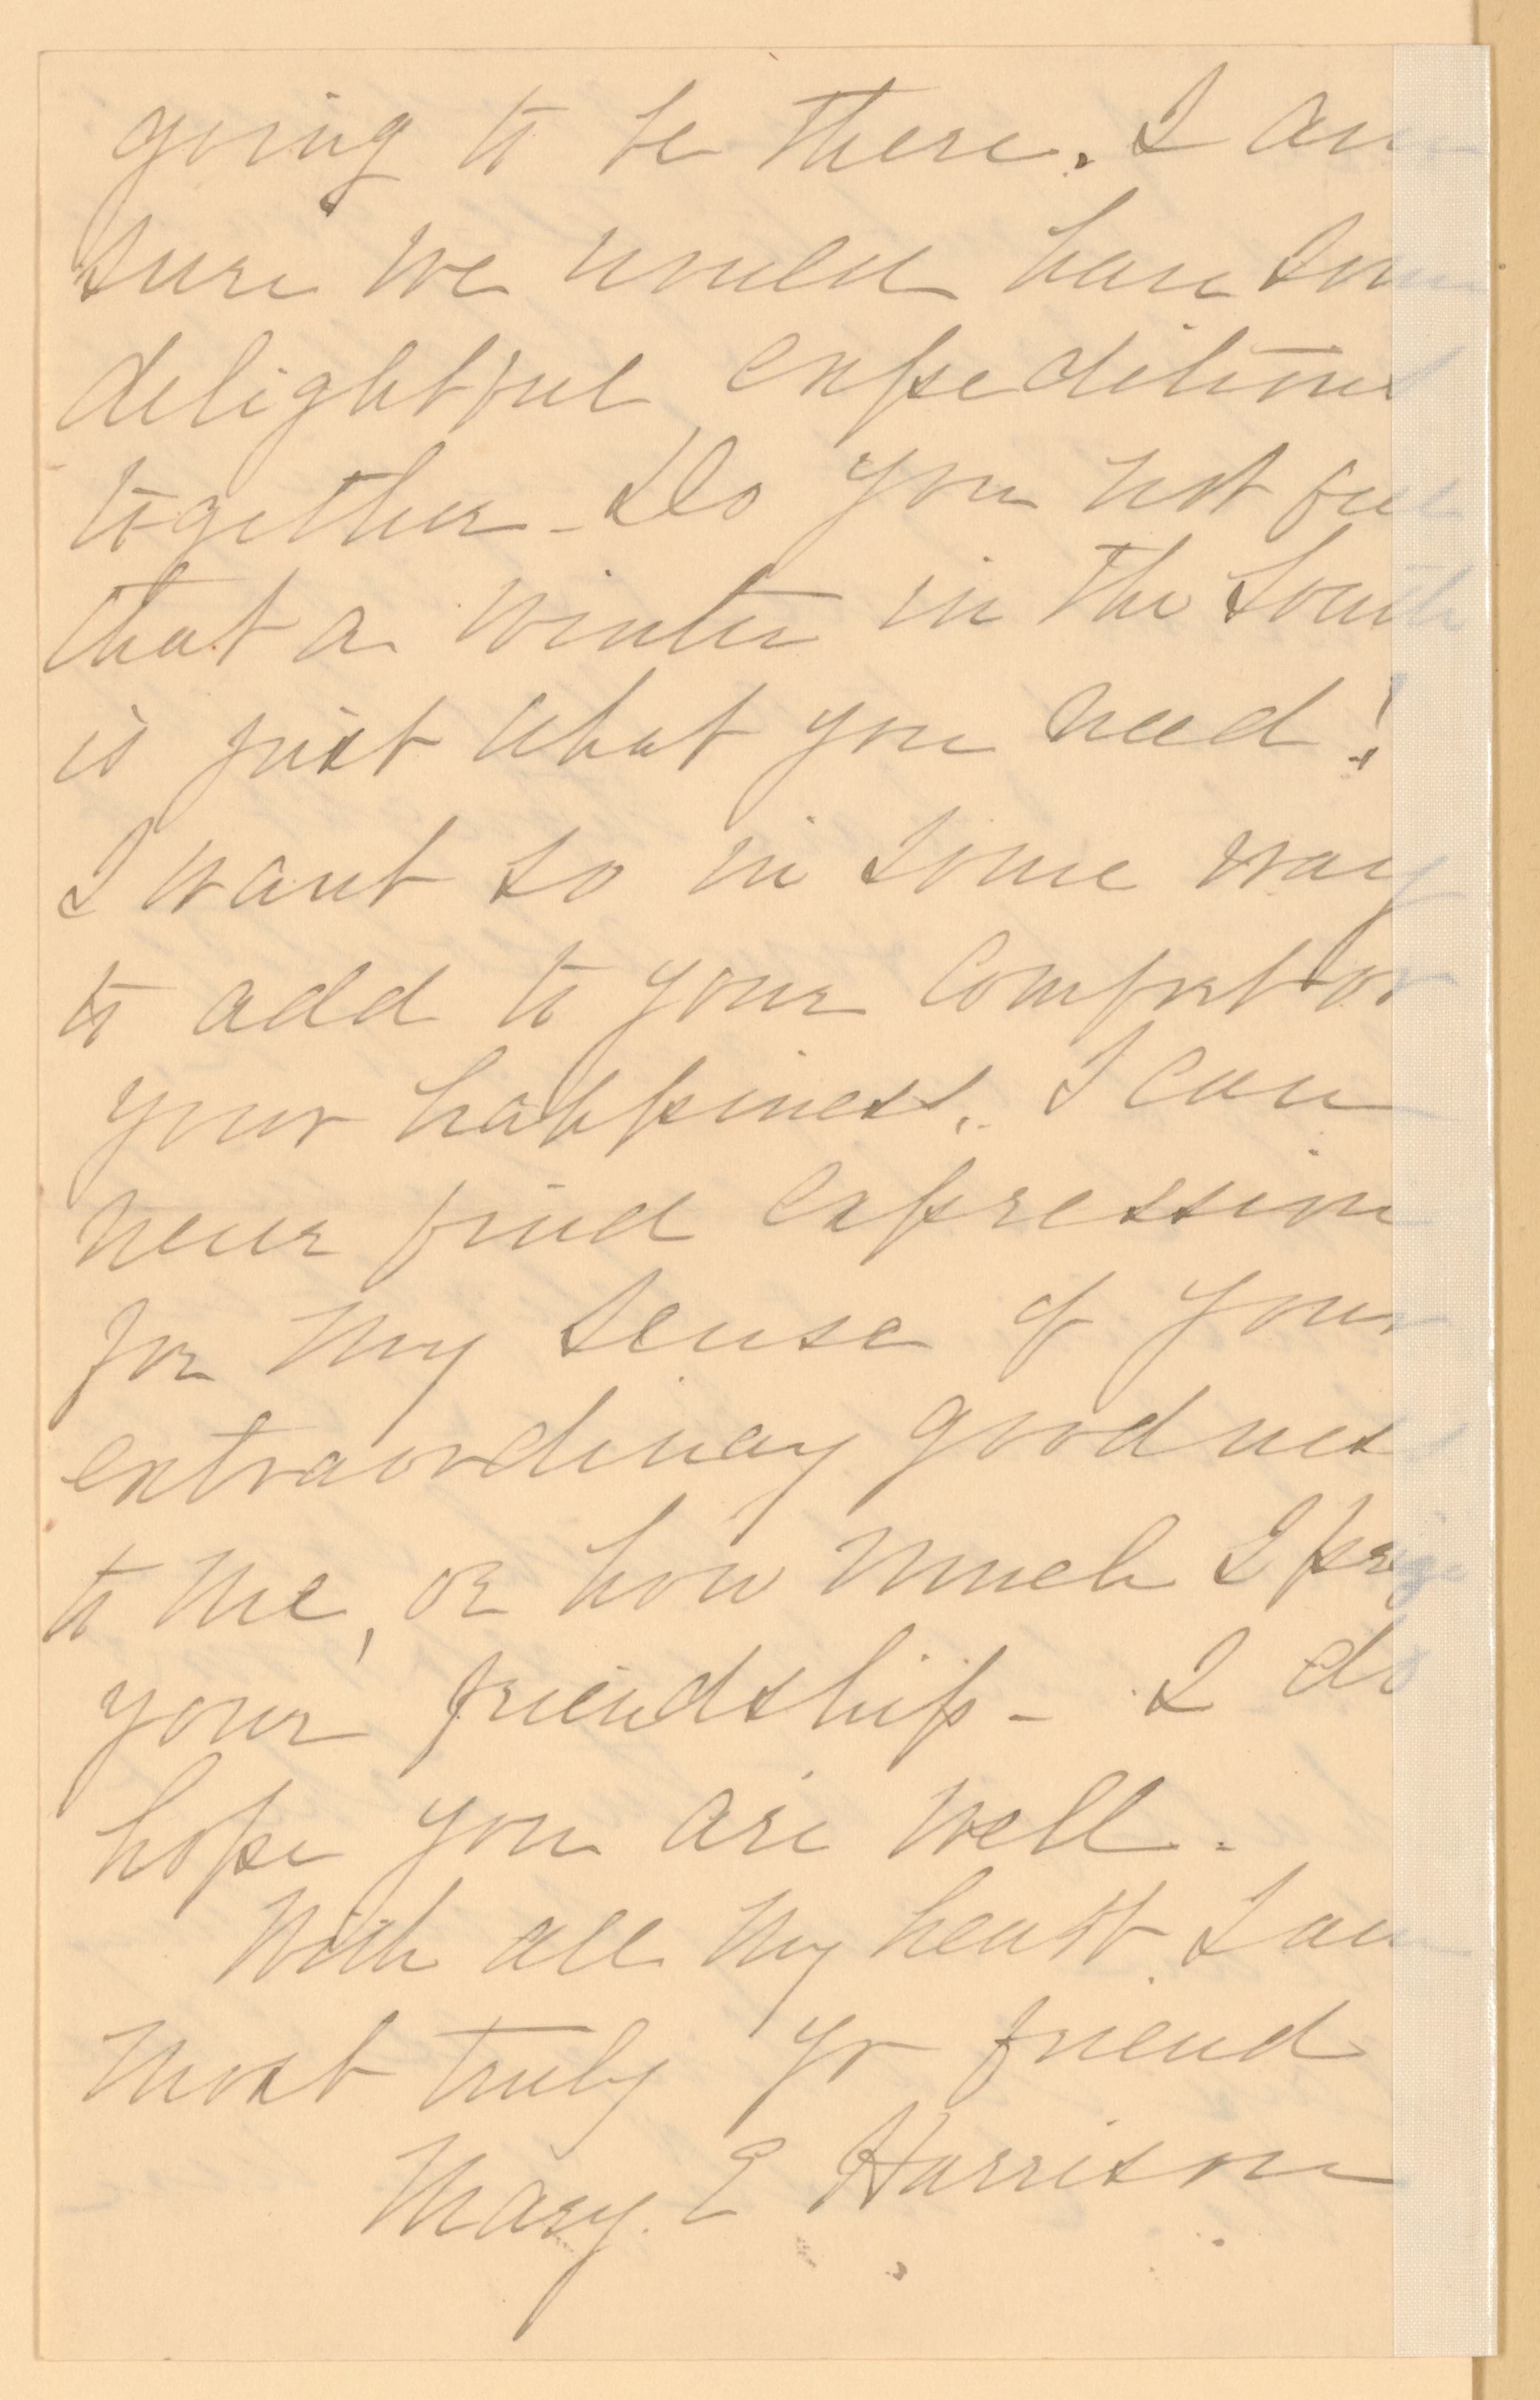 going to be there. I am
sure we would have some
delightful expeditions
together - Do you not feel
that a winter in the South
is just what you need?
I want so in some way
to add to your comfort or
your happiness. I can
never find expression
for my sense of your
extraordinary goodness
to me, or how much I prize
your friendship - I do
hope you are well.
With all my heart I am
most truly yr friend
Mary E Harrison